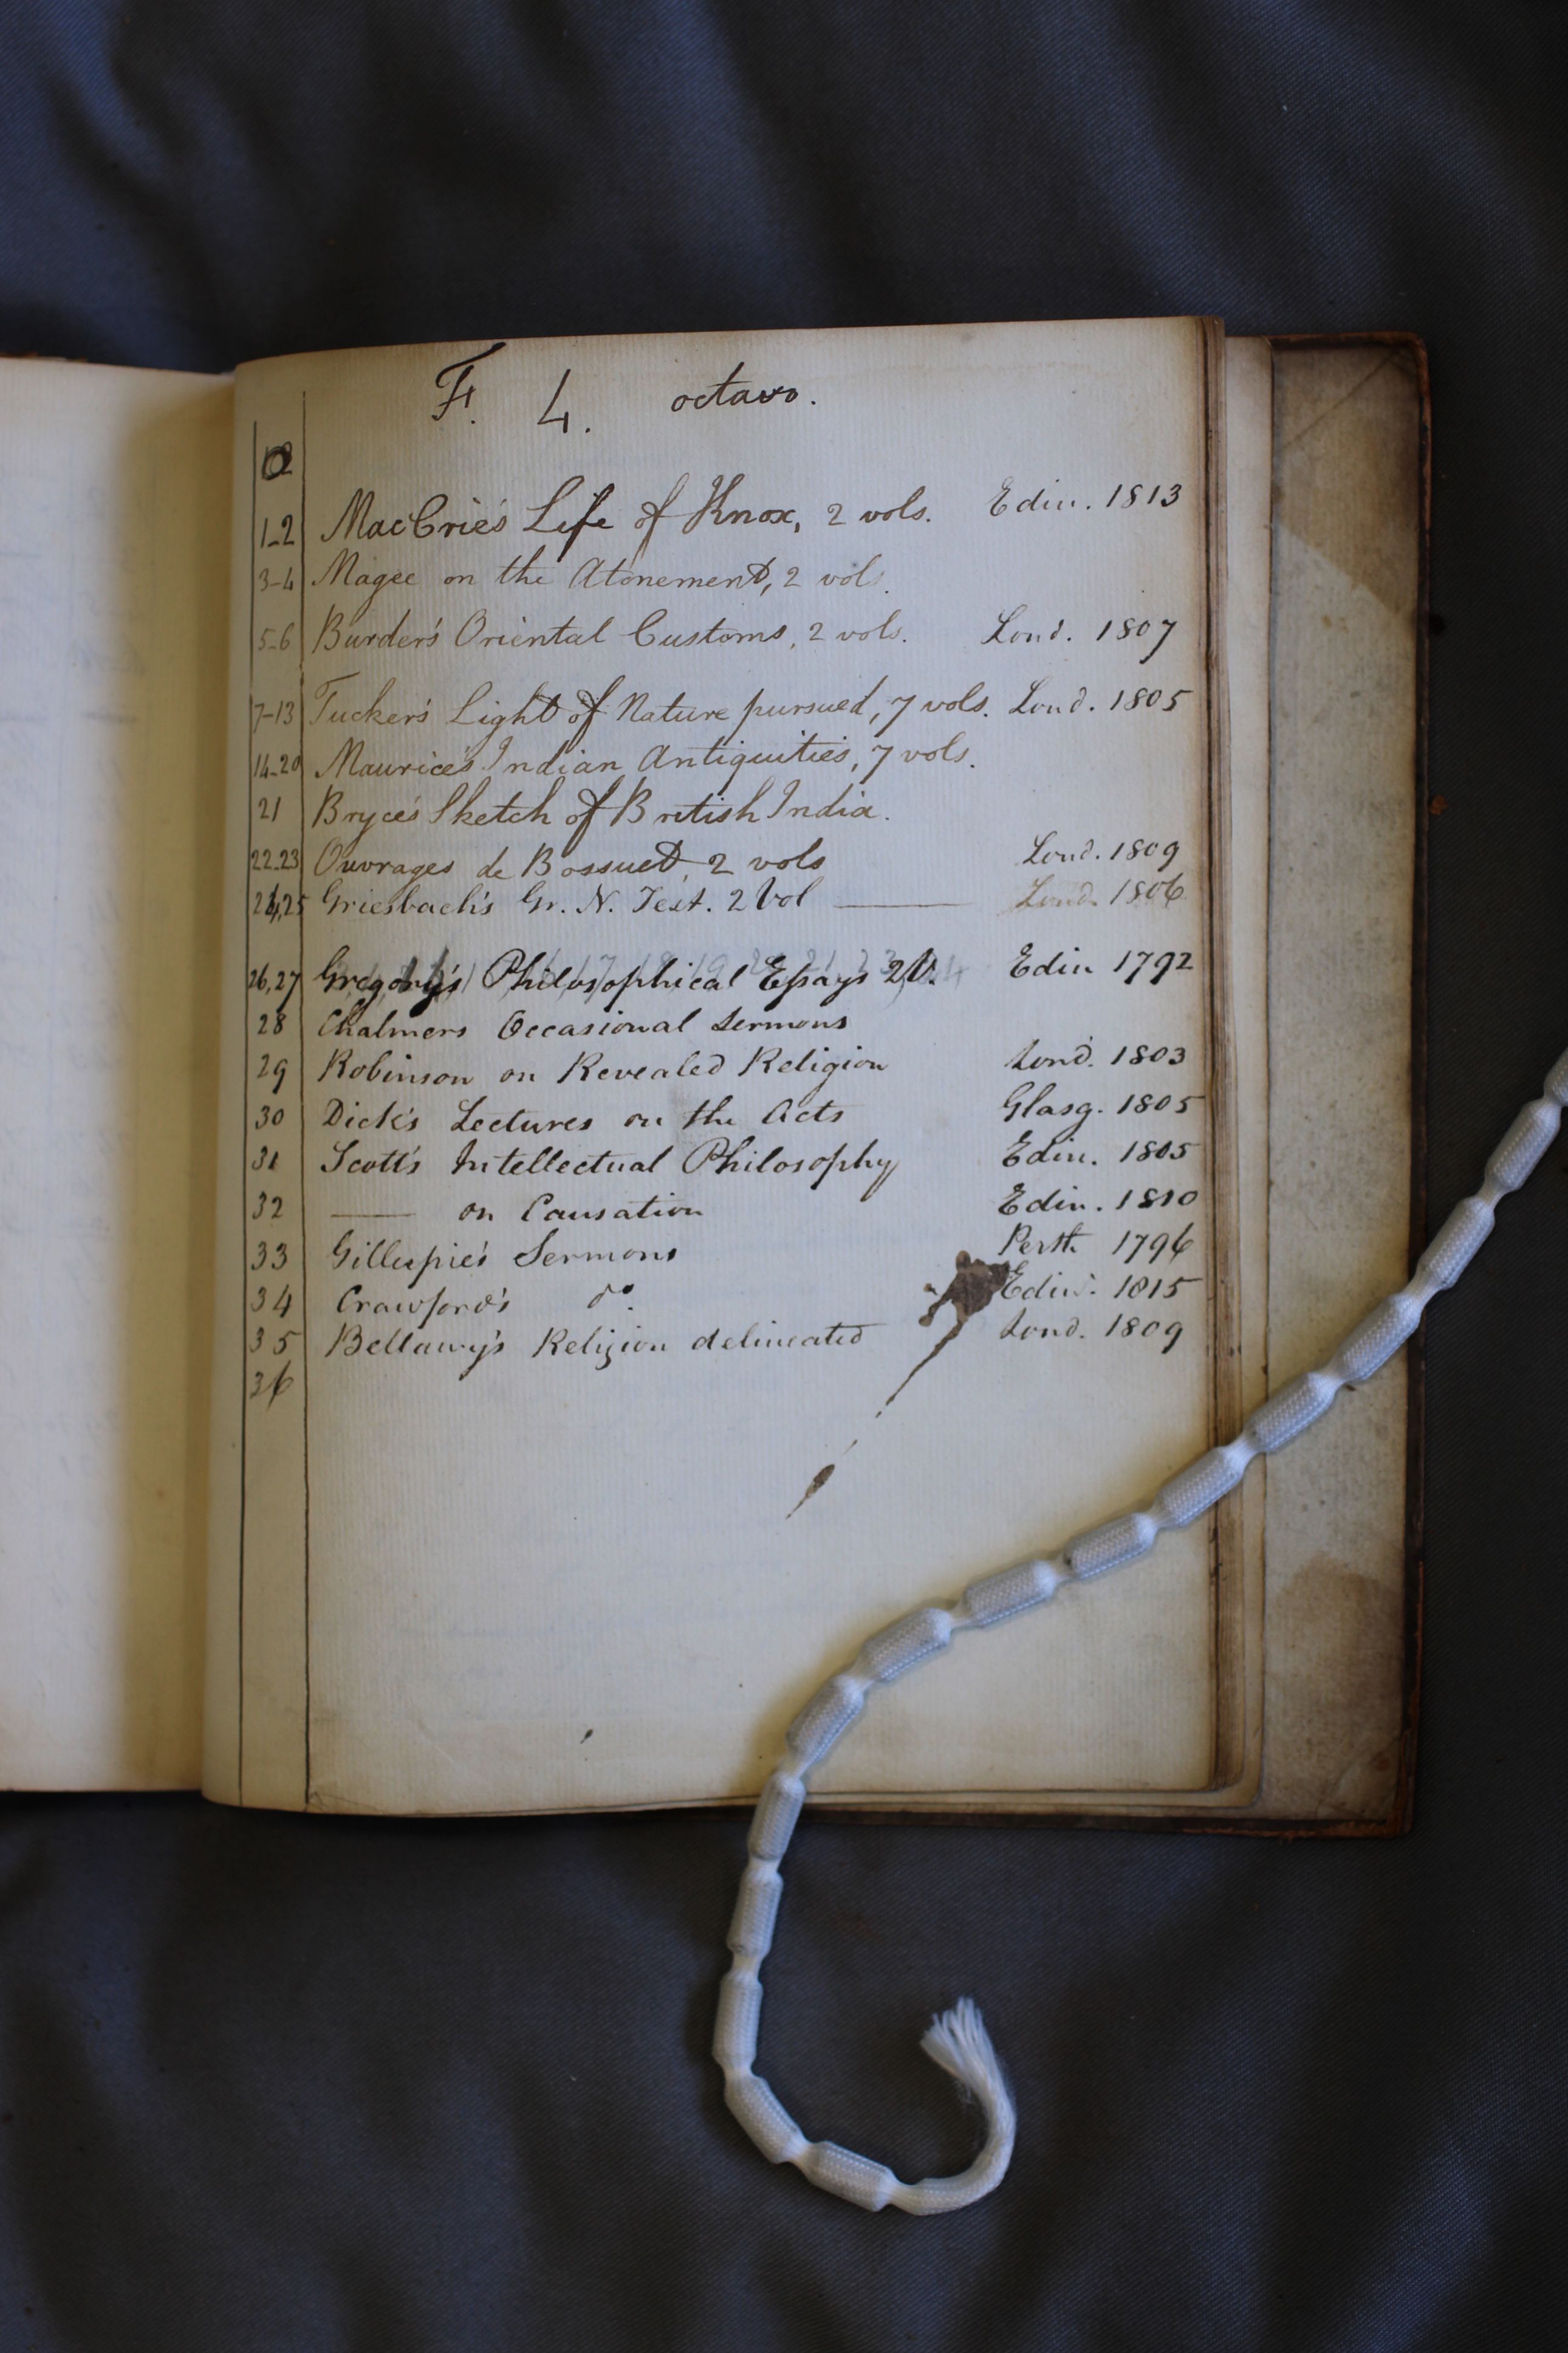 F. 4. octavo.
1-2 MacCrie's Life of Knox, 2 vols. Edin. 1813
3-4 Magee on the Atonement, 2 vol.
5-6 Burder's Oriental Customs, 2 vols. Lond. 1807
7-13 Tucker's Light of Nature pursued, 7 vols. Lond. 1805
14-20 Maurice's Indian Antiquities, 7 vols.
21 Bryce's Sketch of British India.
22-23 Ouvrages de Bossuet, 2 vols Lond. 1809
24,25 Griesbach's Gr. N. Test. 2 Vol —— Lond. 1806
26,27 Gregory's Philosophical Essays 2 V. Edin 1792
28 Chalmers Occasional Sermons
29 Robinson on Revealed Religion Lond. 1803
30 Dick's Lectures on the Acts Glasg. 1805
31 Scott's Intellectual Philosophy Edin. 1805
32 —— on Causation Edin. 1810
33 Gillespie's Sermons Perth 1796
34 Crawford's do. Edin. 1815
35 Bellamy's Religion delineated Lond. 1809
36